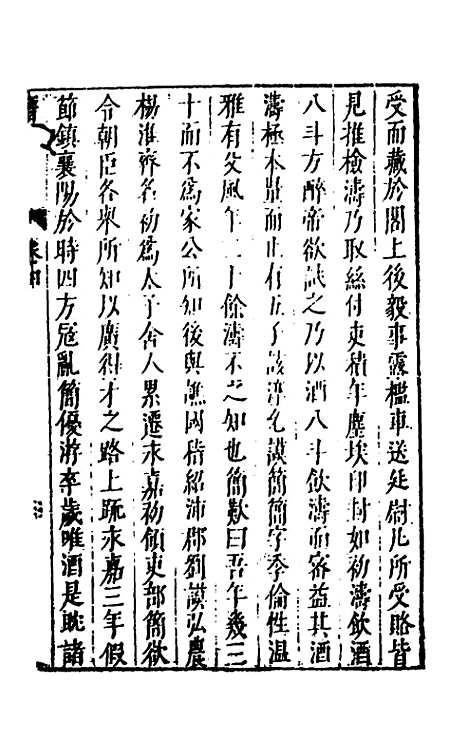 受而藏於閣上後毅事露檻車送廷尉凡所受賂皆
見推檢濤乃取絲付吏積年塵埃印封如初濤飲酒
八斗方醉帝欲試之乃以酒八斗飲濤而審益其酒
濤極本量而止有五子該淳允謨簡簡字季倫性温
雅有父風年二十餘濤不之知也簡歎曰吾年幾三
十而不爲家公所知後與譙國嵇紹沛郡劉謨弘農
楊淮齊名初爲太子舍人累遷永嘉初領吏部簡欲
令朝臣各舉所知以廣得才之路上疏永嘉三年假
節鎮襄陽於時四方寇亂簡優游卒歲唯酒是耽諸